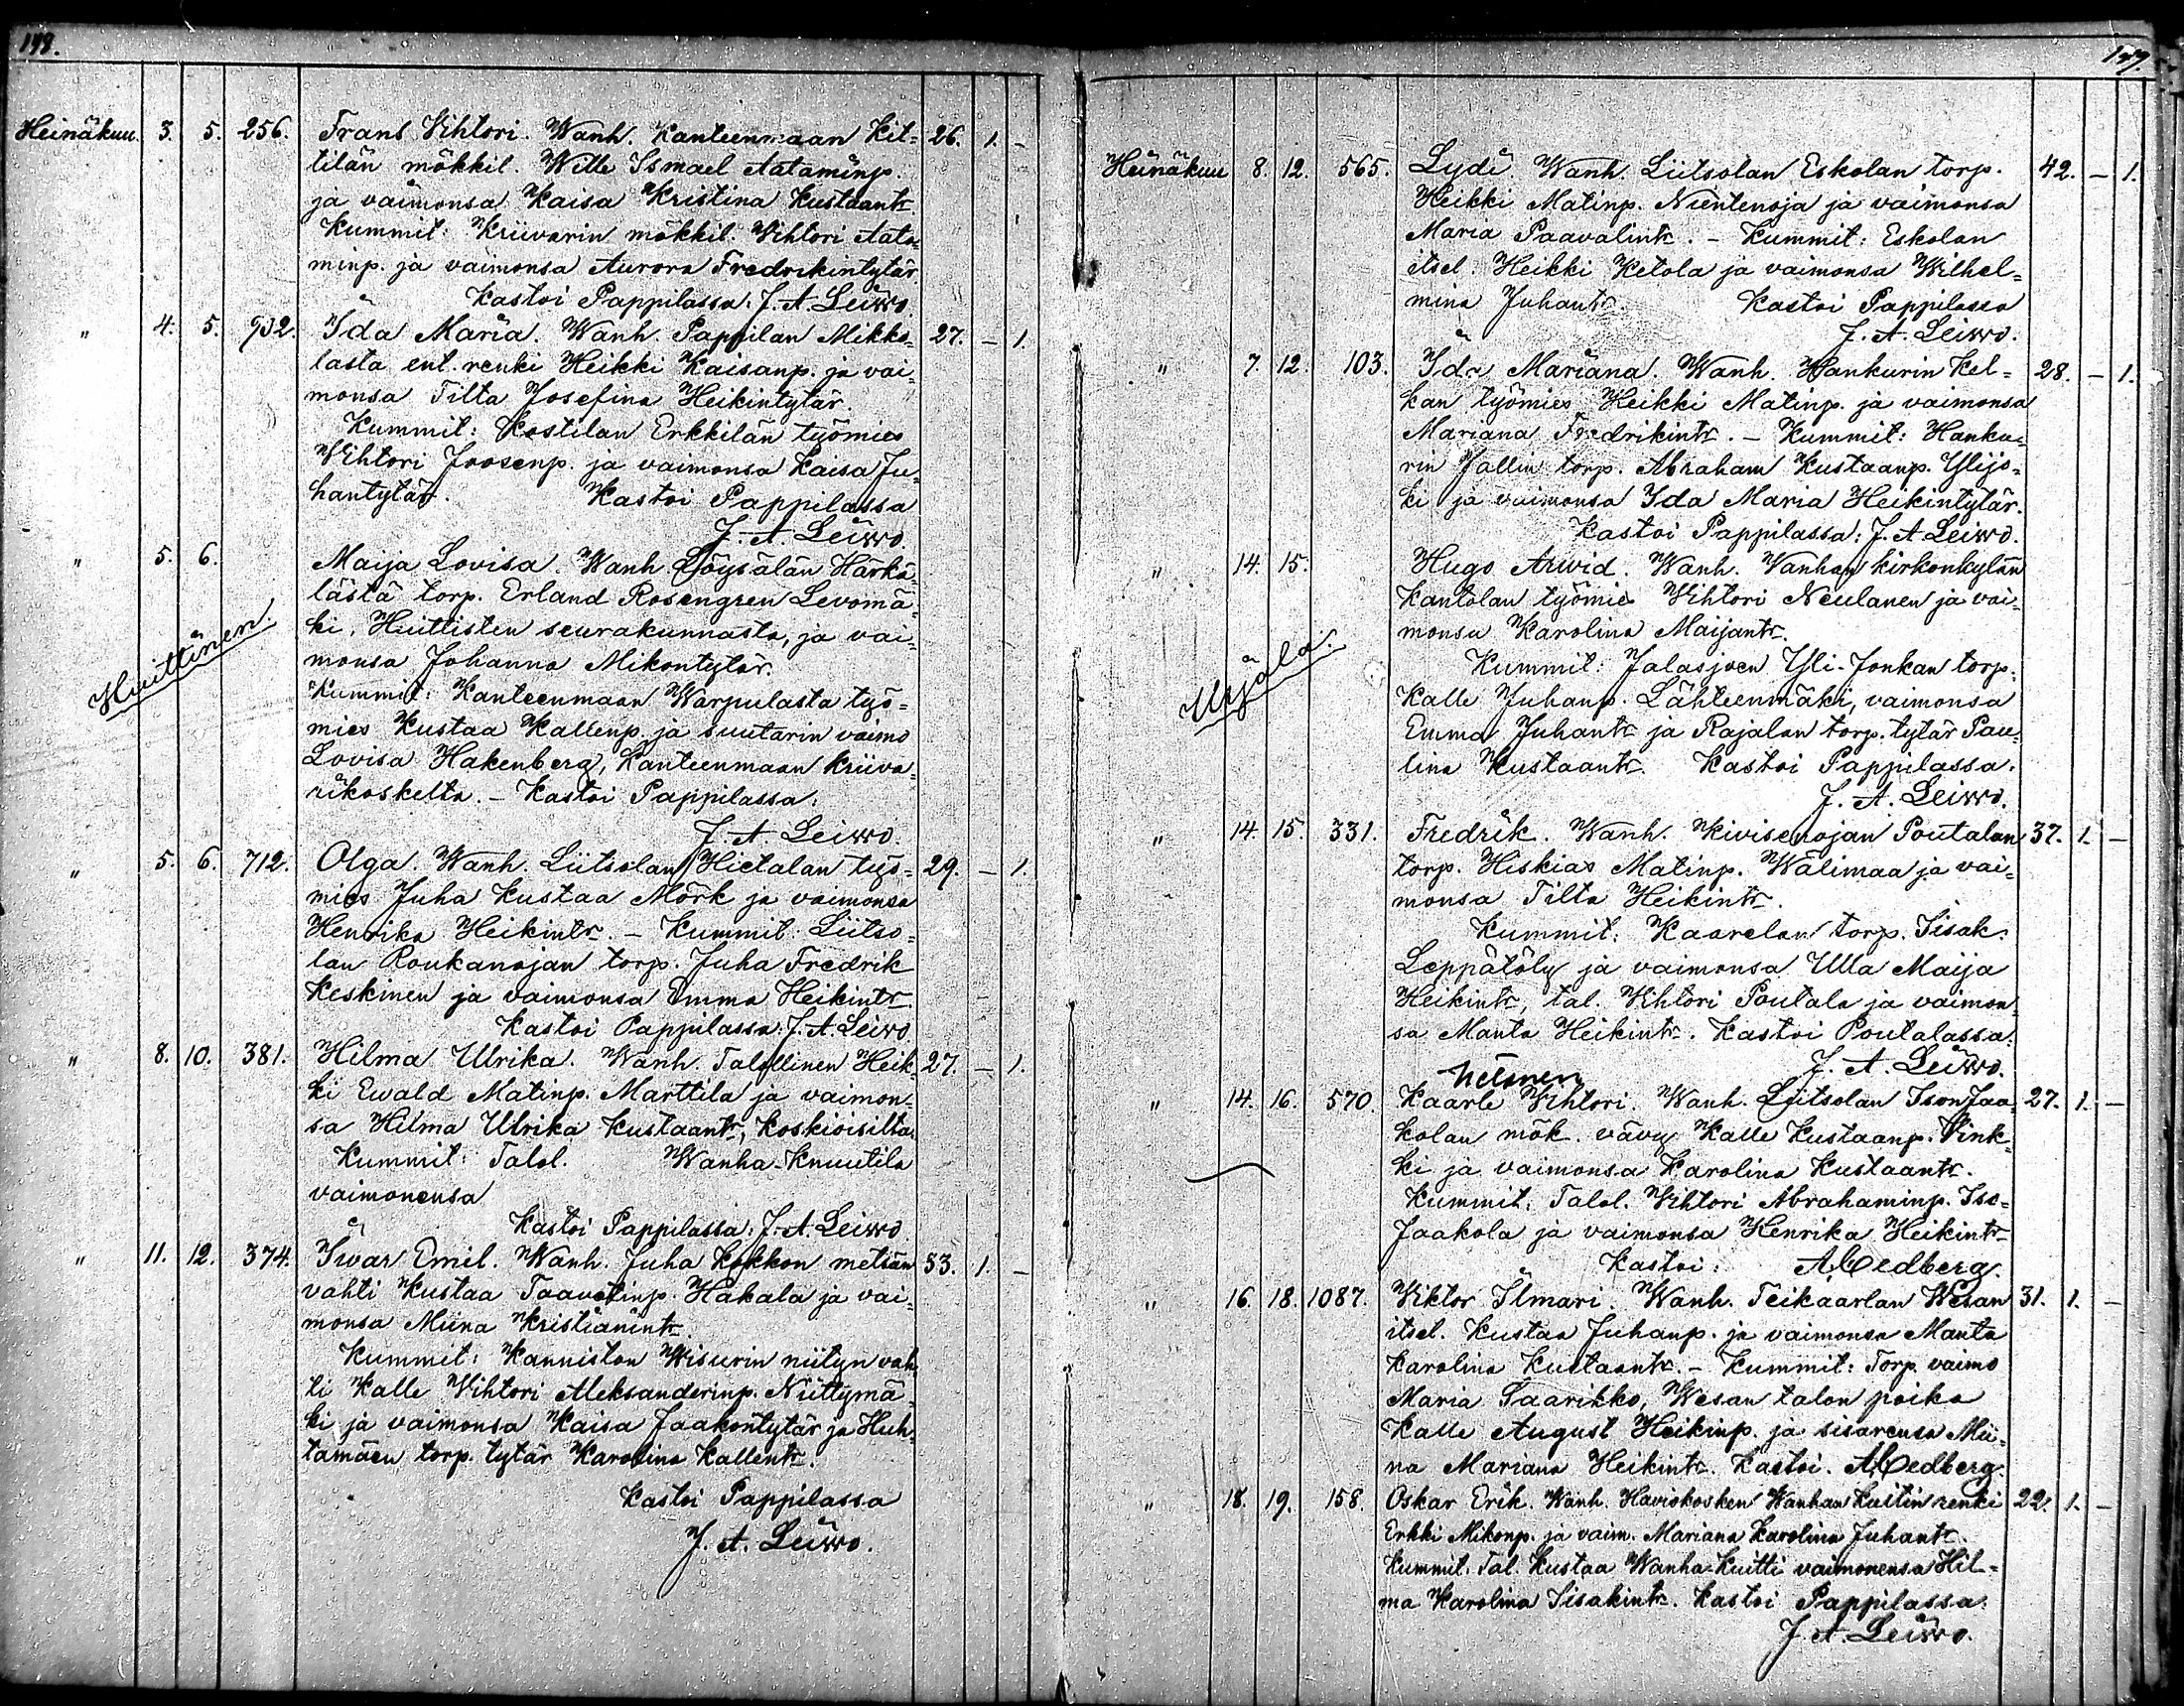 148.
Heinäkuu. 3. 5. 256. Frans Vihtori. Wanh. Kanteenmaan Kit= 26. 1. -
tilän mökkil. Wille Ismael Aataminp.
ja vaimonsa Kaisa Kristina Kustaantr.
Kummit: Kriivarin mökkil. Vihtori Aata=
minp. ja vaimonsa Aurora Fredrikintytär.
Kastoi Pappilassa: J. A. Leiwo.
" 4. 5. 932. Ida Maria. Wanh. Pappilan Mikko= 27. - 1.
lasta ent. renki Heikki Kaisanp. ja vai=
monsa Tilta Josefina Heikintytär.
Kummit: Kostilan Erkkilän työmies
Vihtori Joosenp. ja vaimonsa Kaisa Ju=
hantytär. Kastoi Pappilassa
J. A. Leiwo
" 5. 6. Maija Lovisa. Wanh. Löysälän Härkä=
lästä torp. Erland Rosengren Levomä=
ki, Huittisten seurakunnasta, ja vai=
Huittinen.
monsa Johanna Mikontytär.
Kummit: Kanteenmaan Warpulasta työ=
mies Kustaa Kallenp. ja suutarin vaimo
Lovisa Hakenberg, Kanteenmaan Kriiva=
rikoskelta. - Kastoi Pappilassa:
J. A. Leiwo.
" 5. 6. 712. Olga. Wanh. Liitsolan Hietalan työ= 29. - 1.
mies Juha Kustaa Mörk ja vaimonsa
Henrika Heikintr. - Kummit: Liitso=
lan Roukanojan torp. Juha Fredrik
Keskinen ja vaimonsa Emma Heikintr.
Kastoi Pappilassa: J. A. Leiwo
" 8. 10. 381. Hilma Ulrika. Wanh. Talollinen Heik= 27. - 1.
ki Ewald Matinp. Marttila ja vaimon=
sa Hilma Ulrika Kustaantr, Koskioisilta.
Kummit: Talol. Wanha-Knuutila
vaimonensa
Kastoi Pappilassa: J. A. Leiwo
" 11. 12. 374. Iwar Emil. Wanh. Juha Kokkon metsän 53. 1. -
vahti Kustaa Taavetinp. Hakala ja vai=
monsa Miina Kristianintr.
Kummit: Kanniston Wisurin niityn vah=
ti Kalle Vihtori Aleksanderinp. Niittymä=
ki ja vaimonsa Kaisa Jaakontytär ja Huh=
tamäen torp. tytär Karolina Kallentr.
Kastoi Pappilassa
J. A. Leiwo.
149.
Heinäkuu 8. 12. 565. Lydi. Wanh. Liitsolan Eskolan torp. 42. - 1.
Heikki Matinp. Nientenoja ja vaimonsa
Maria Paavalintr. - Kummit: Eskolan
itsel. Heikki Ketola ja vaimonsa Wilhel=
mina Juhantr. Kastoi Pappilassa
J. A. Leiwo.
" 7. 12. 103. Ida Mariana. Wanh. Hankurin Kel= 28. - 1.
kan työmies Heikki Matinp. ja vaimonsa
Mariana Fredrikintr. - Kummit: Hanku=
rin Jallin torp. Abraham Kustaanp. Ylijo=
ki ja vaimonsa Ida Maria Heikintytär.
Kastoi Pappilassa: J. A. Leiwo.
" 14. 15. Hugo Arwid. Wanh. Vanhan kirkonkylän
Kantolan työmies Vihtori Neulanen ja vai=
monsa Karolina Maijantr.
Urjala.
Kummit: Jalasjoen Yli-Jonkan torp.
Kalle Juhanp. Lähteenmäki, vaimonsa
Emma Juhantr ja Rajalan torp. tytär Pau=
lina Kustaantr. Kastoi Pappilassa.
J. A. Leiwo.
" 14. 15. 331. Fredrik. Wanh. Kivisenojan Poutalan 37. 1. -
torp. Hiskias Matinp. Wälimaa ja vai=
monsa Tilta Heikintr.
Kummit: Kaarelan torp. Iisak.
Leppätöly ja vaimonsa Ulla Maija
Heikintr, tal. Vihtori Poutala ja vaimon=
sa Manta Heikintr. Kastoi Poutalassa:
J. A. Leiwo.
" 14. 16. 570. Kaarle Vihtori. Wanh. Liitsolan Ison Jaa= 27. 1. -
kolan mök. vävy Kalle Kustaanp. Vink=
ki ja vaimonsa Karolina Kustaantr.
Kummit: Talol. Vihtori Abrahaminp. Iso=
Jaakola ja vaimonsa Henrika Heikintr
Kastoi: A. Cedberg.
" 16. 18. 1087. Viktor Ilmari. Wanh. Teikaarlan Wesan 31. 1. -
itsel. Kustaa Juhanp. ja vaimonsa Manta
Karolina Kustaantr. - Kummit: Torp. vaimo
Maria Saarikko, Wesan talon poika
Kalle August Heikinp. ja sisarensa Mii=
na Mariana Heikintr. Kastoi. A. Cedberg.
" 18. 19. 158. Oskar Erik. Wanh. Haviokosken Wanhan Kuitin renki 22. 1. -
Erkki Mikonp. ja vaim. Mariana Karolina Juhantr.
Kummit: Tal. Kustaa Wanha-Kuitti vaimonensa Hil=
ma Karolina Iisakintr. Kastoi Pappilassa:
J. A. Leiwo.